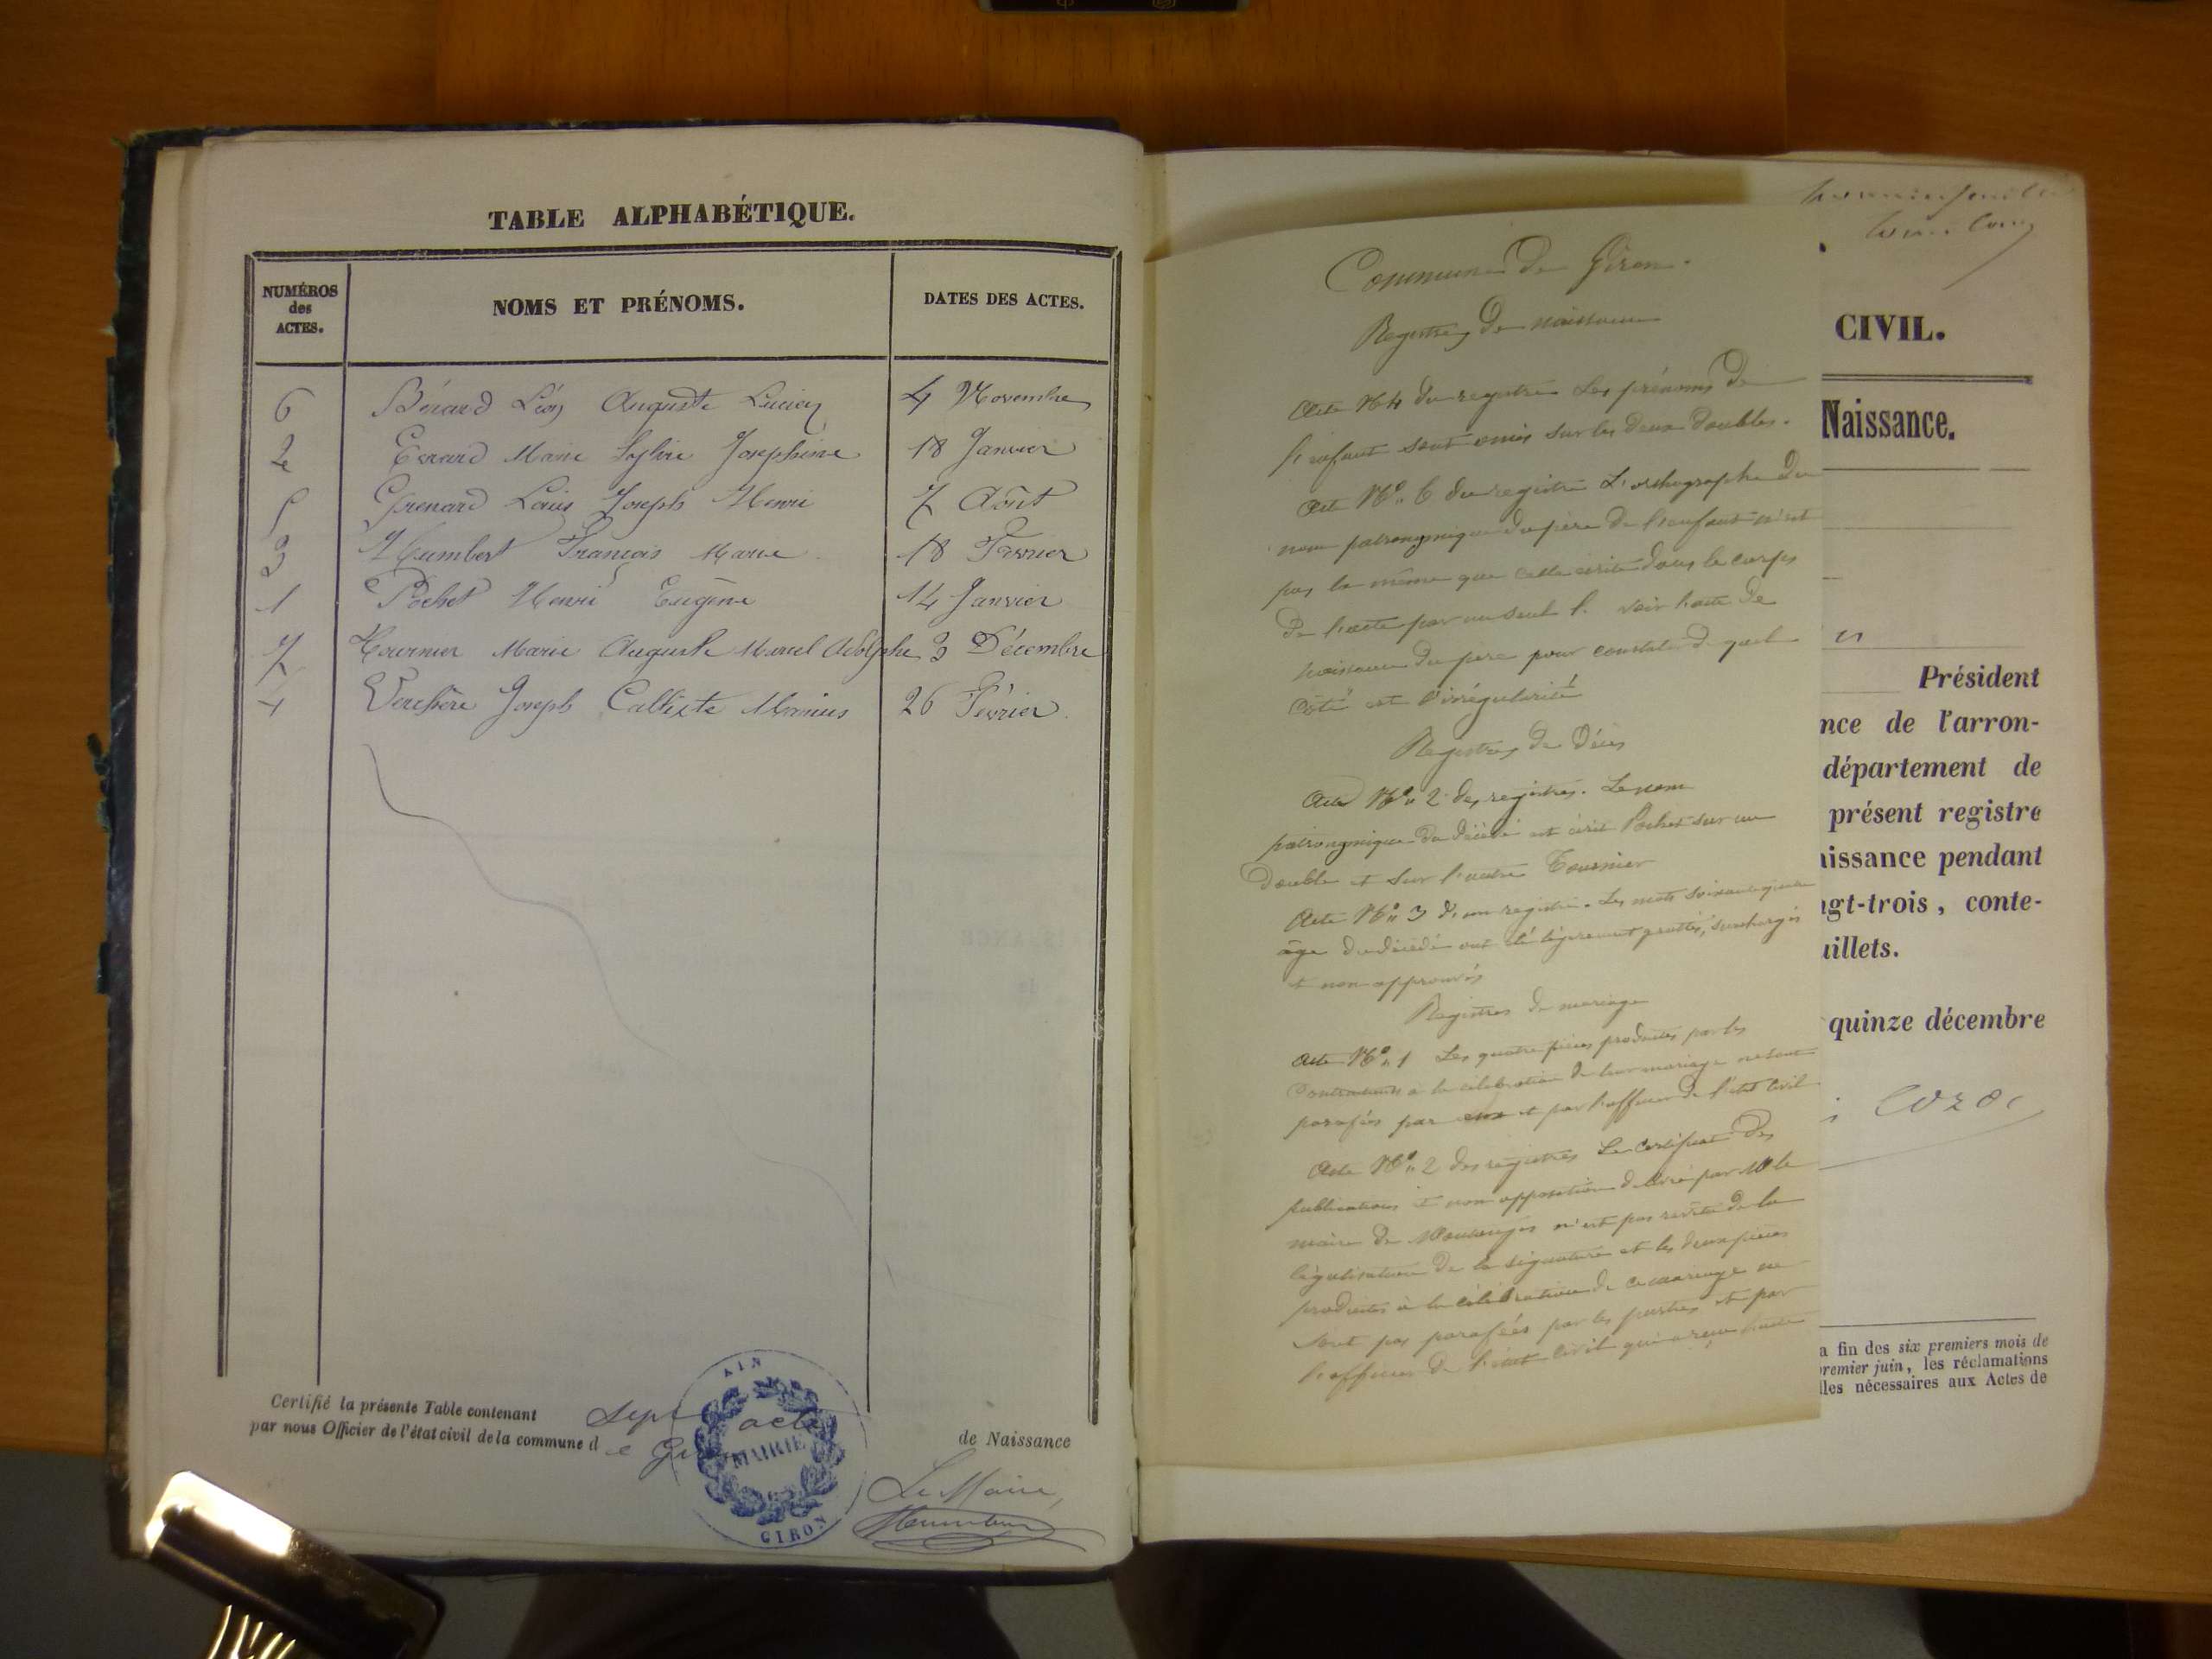 TABLE ALPHABÉTIQUE.
NUMÉROS
des
ACTES.
NOMS ET PRÉNOMS.
DATES DES ACTES.
6 Bérard Léon Auguste Lucien 4 Novembre
2 Evrard Marie Sylvie Josephine 18 Janvier
5 Grenard Louis Joseph Henri 7 Août
3 Humbert François Marie 18 Février
1 Pochet Henri Eugène 14 Janvier
7 Tournier Marie Auguste Marcel Adolphe 3 Décembre
4 Joseph Callixte Marius 26 Février
Certifié la présente Table contenant sept actes de Naissance
par nous Officier de l'état civil de la commune de Giron
AIN
MAIRIE
GIRON
Le Maire,
Commune de Giron.
Registres de naissance
Acte N° 4 du registre Les prénoms de
l'enfant sont omis sur les deux doubles.
Acte N° 6 du registre L'orthographe du
nom patronymique du père de l'enfant n'est
pas la même que celle écrite dans le corps
de l'acte par un seul r. voir l'acte de
naissance du père pour constater de quel
côté est l'irrégularité
Registres de Décès
Acte N° 2 des registres. Le nom
patronymique du décédé est écrit Pochet sur un
double et sur l'autre Tournier
Acte N° 3 d'un registre. Les mots soixante quinze
âge du décédé ont été légèrement grattés, surchargés
et non approuvés
Registres de mariage
Acte N° 1 Les quatre pièces produites par les
contractants à la célébration de leur mariage ne sont
parafés par eux et par l'officier de l'état civil
Acte N° 2 des registres Le certificat des
publications et non opposition délivré par M le
maire de n'est pas revêtu de la
légalisation de la signature et les deux pièces
produites à la célébration de ce mariage ne
sont pas parafées par les parties et par
l'officier de l'état civil qui a reçu l'acte
CIVIL.
Naissance.
Président
nce de l'arron-
département de
présent registre
aissance pendant
ngt-trois, conte-
uillets.
quinze décembre
a fin des six premiers mois de
premier juin, les réclamations
lles nécessaires aux Actes de